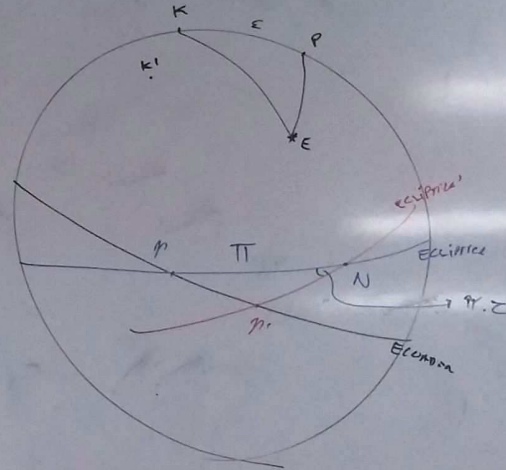 K
ε
P
K'
E
ecliptica'
Π
Ecliptica
N
π.τ
Ecuador